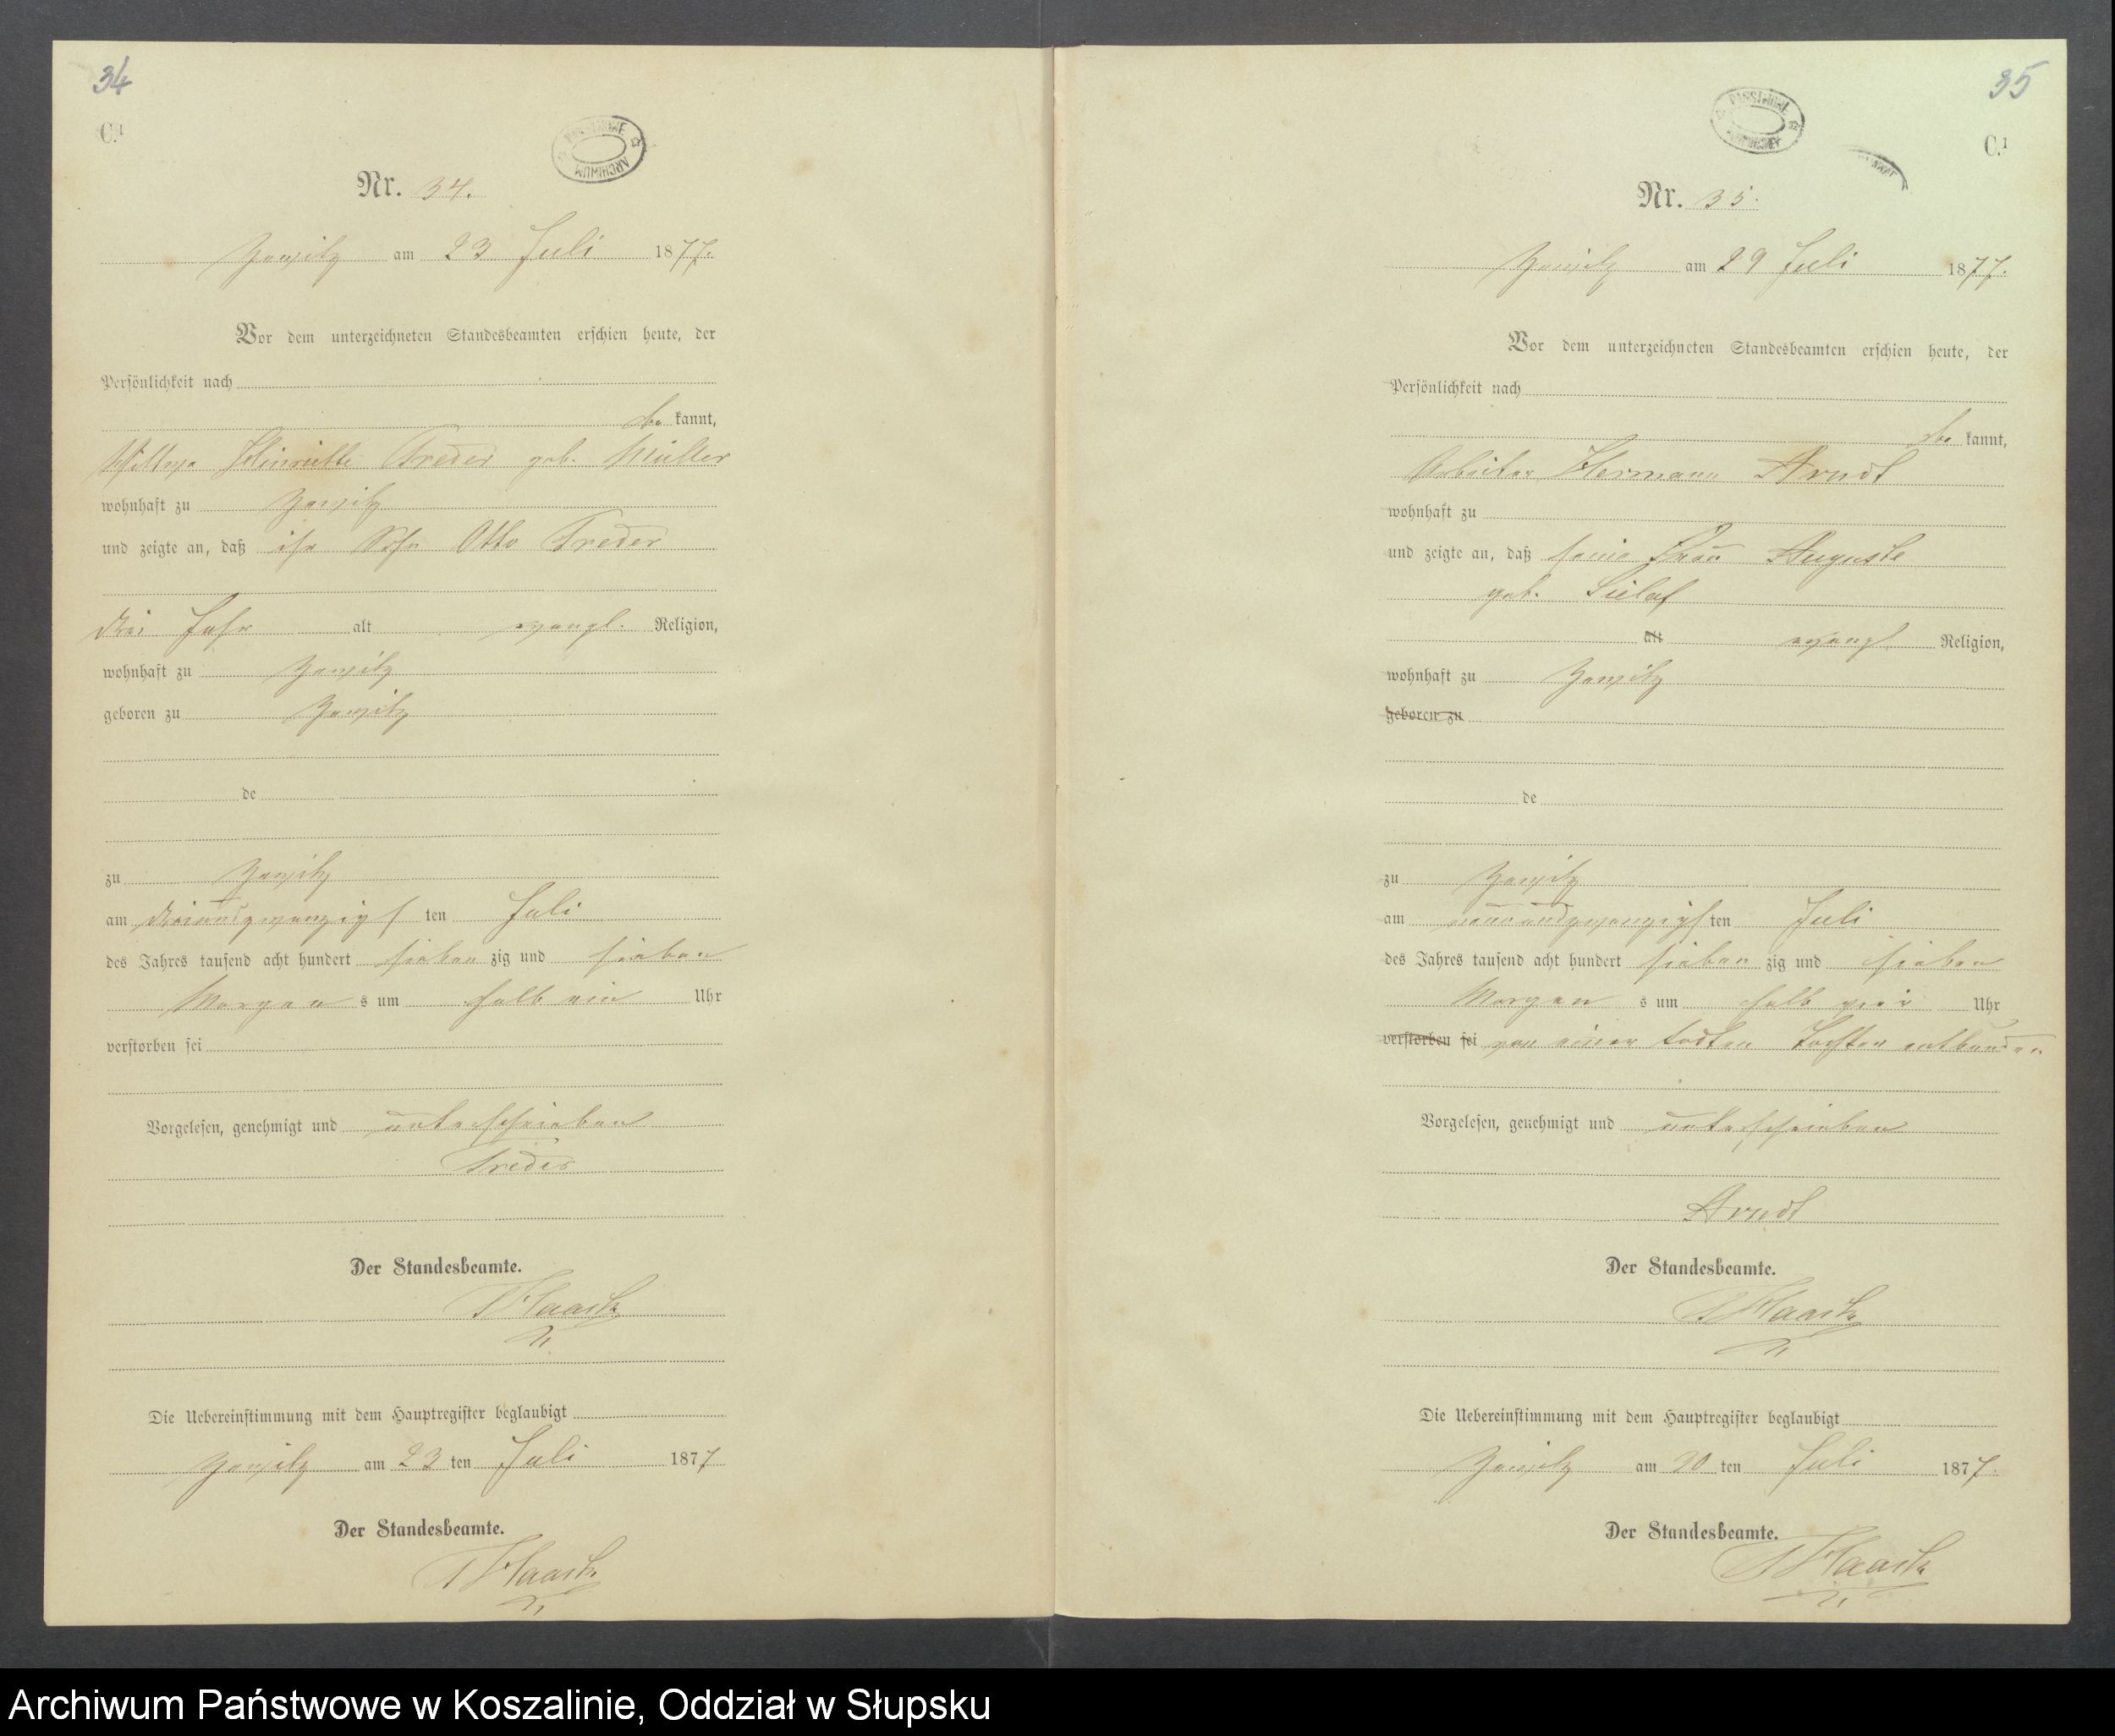 34
C.¹
PAŃSTWOWE ARCHIWUM
Nr. 34.
am 23 Juli 1877.
Vor dem unterzeichneten Standesbeamten erschien heute, der
Persönlichkeit nach
be kannt,
Wittwe Heinriette Treder geb. Müller
wohnhaft zu
und zeigte an, daß ihr Sohn Otto Treder
drei Jahr alt evangl. Religion,
wohnhaft zu
geboren zu
de
zu
am dreiundzwanzigsten Juli
des Jahres tausend acht hundert sieben zig und sieben
Morgen s um halb ein Uhr
verstorben sei
Vorgelesen, genehmigt und unterschrieben
Treder
Der Standesbeamte.
Die Uebereinstimmung mit dem Hauptregister beglaubigt
am 23 ten Juli 1877
Der Standesbeamte.
35
C.¹
PAŃSTWOWE ARCHIWUM
Nr. 35.
am 29 Juli 1877.
Vor dem unterzeichneten Standesbeamten erschien heute, der
Persönlichkeit nach
be kannt,
Arbeiter Hermann Arndt
wohnhaft zu
und zeigte an, daß seine Frau Auguste
geb. Sielaf
alt evangl. Religion,
wohnhaft zu
geboren zu
de
zu
am neunundzwanzigsten Juli
des Jahres tausend acht hundert sieben zig und sieben
Morgen s um halb vier Uhr
verstorben sei von einer todten Tochter entbunden
Vorgelesen, genehmigt und unterschrieben
Arndt
Der Standesbeamte.
Die Uebereinstimmung mit dem Hauptregister beglaubigt
am 30 ten Juli 1877.
Der Standesbeamte.
Archiwum Państwowe w Koszalinie, Oddział w Słupsku